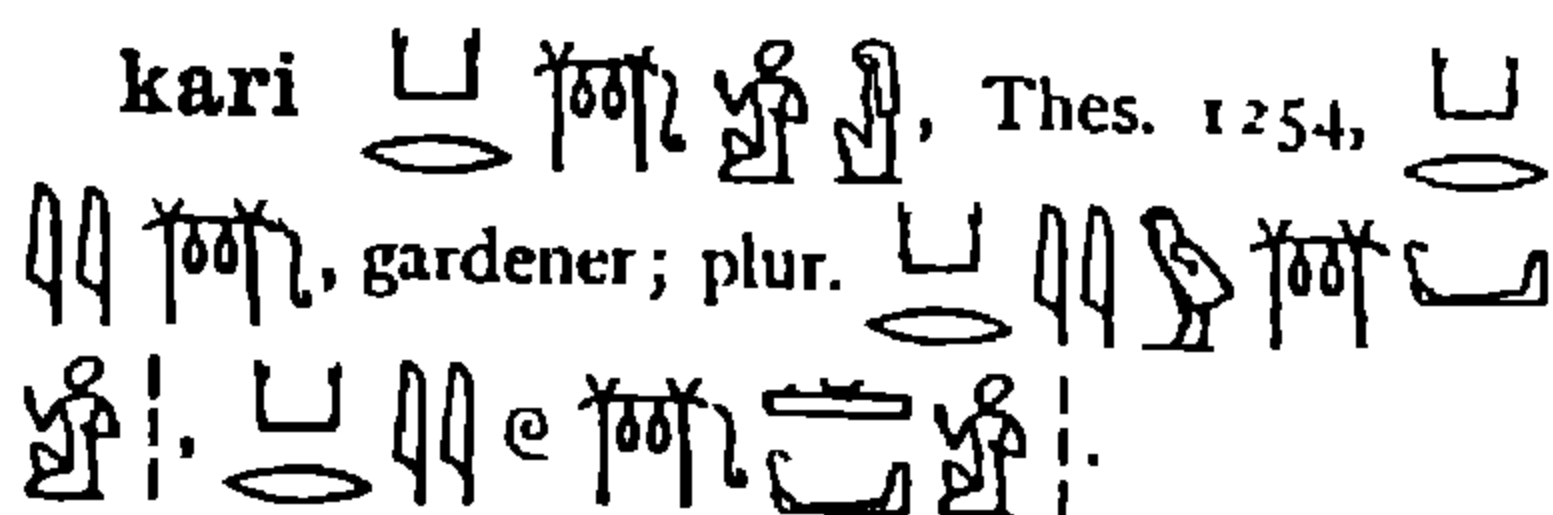 kari 𓂓𓂋𓇭𓀀, Thes. 1254, 𓂓𓂋
𓇌𓇭, gardener; plur. 𓂓𓂋𓇌𓅱𓇭
𓀀𓏥, 𓂓𓂋𓇌𓏲𓇭𓀀𓏥.